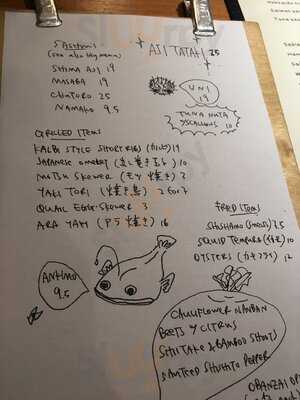 SASHIMI
(see also big menu)
SHIMA AJI 19
MASABA 19
CHUTORO 25
NAMAKO 9.5
AJI TATAKI 25
UNI
19
TUNA NUTA
y SCALLIONS 10
GRILLED ITEMS
KALBI STYLE SHORT RIBS (カルビ) 19
JAPANESE OMELET (だし巻き玉子) 10
MOTSU SKEWER (モツ焼き) 3
YAKI TORI (焼き鳥) 2 for 7
QUAIL EGGS SKEWER 3
ARA YAKI (アラ焼き) 16
ANKIMO
9.5
FRIED ITEMS
SHISHAMO (smelts) 7.5
SQUID TEMPURA 10
OYSTERS (カキフライ) 12
CAULIFLOWER NANBAN
BEETS y CITRUS
SHIITAKE & BAMBOO SHOOTS
SAUTEED SHISHITO PEPPER
OBANZAI